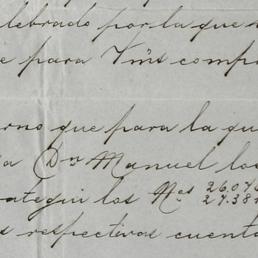 lebrado por la que
e para Vms comp
rno que para la qu
a Dn Manuel los
ategui los Nos 26.076
27.381
s respectivas cuenta